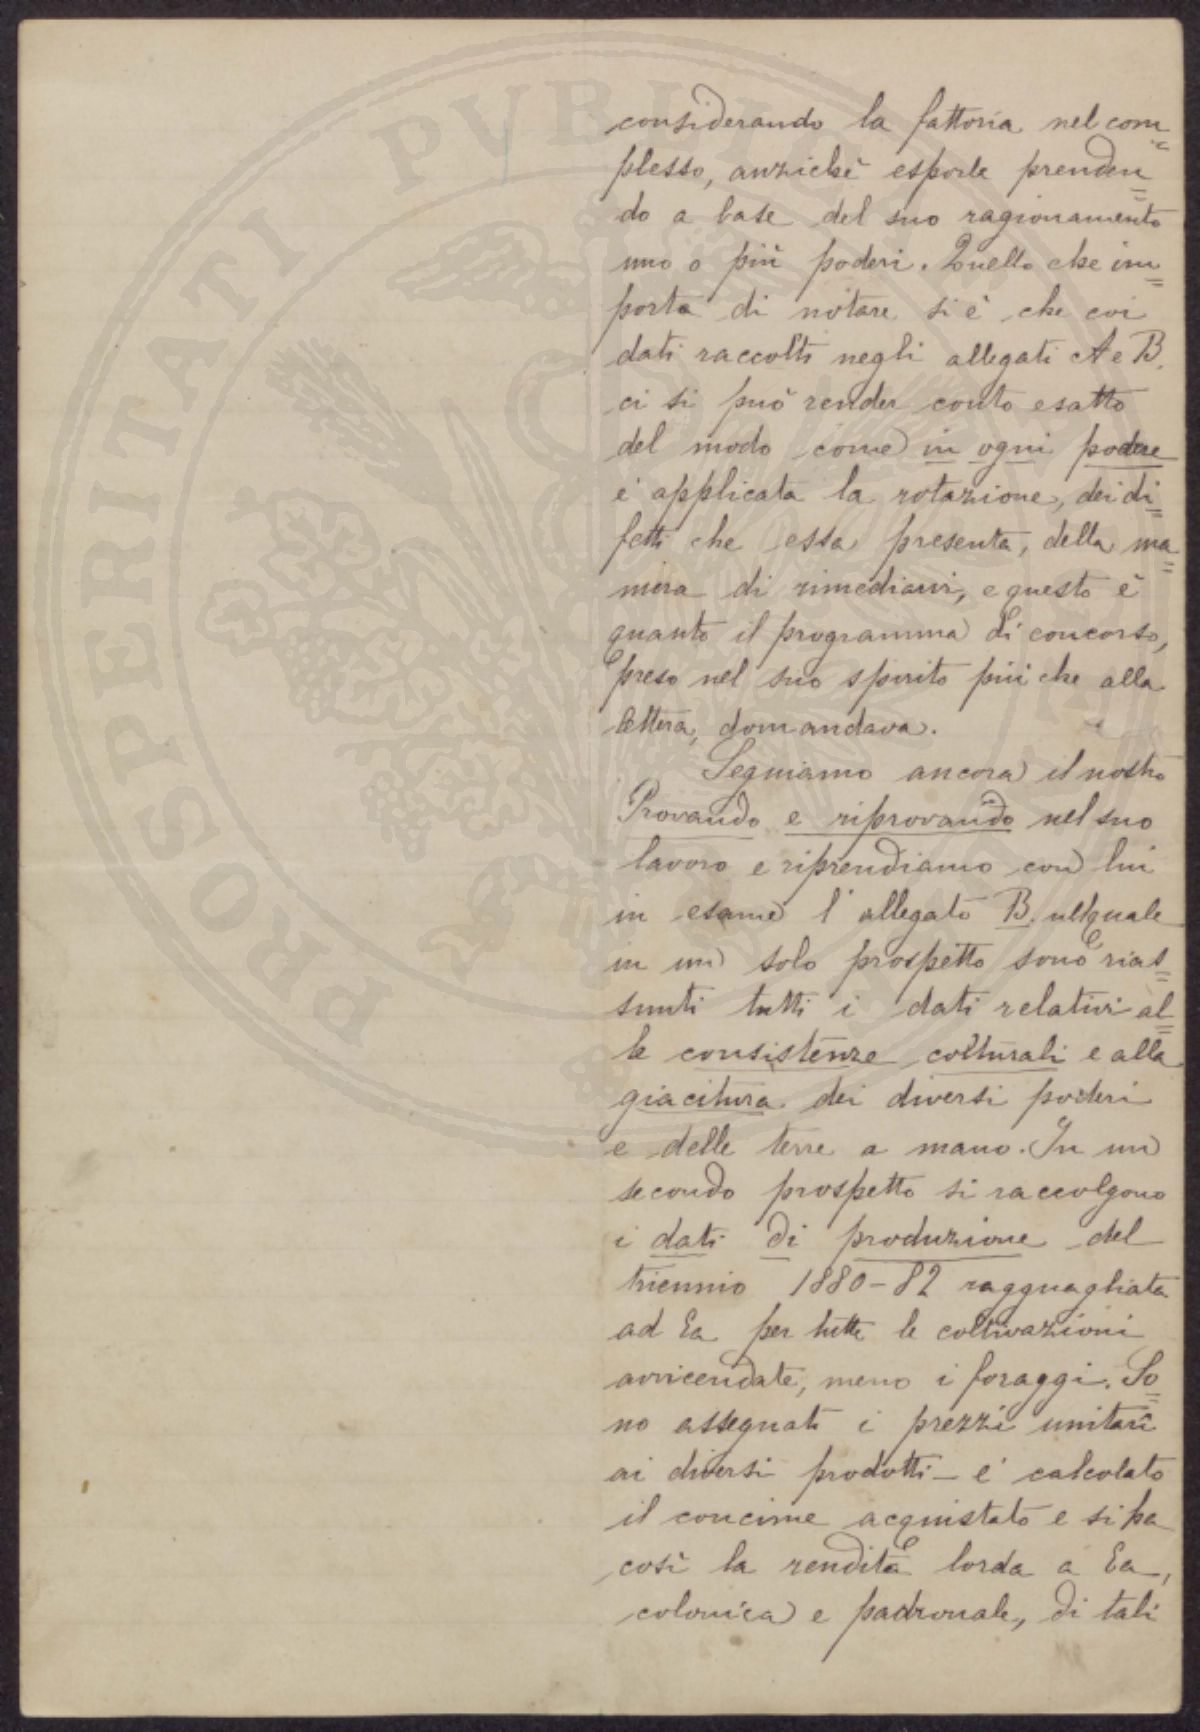 considerando la fattoria nel com=
plesso, anzichè esporle prenden=
do a base del suo ragionamento
uno o più poderi. Quello che im=
porta di notare si è che coi
dati raccolti negli allegati A e B.
ci si può render conto esatto
del modo come in ogni podere
è applicata la rotazione, dei di=
fetti che essa presenta, della ma=
niera di rimediarvi, e questo è
quanto il programma di concorso,
preso nel suo spirito più che alla
lettera, domandava.
Seguiamo ancora il nostro
Provando e riprovando nel suo
lavoro e riprendiamo con lui
in esame l'allegato B. nel quale
in un solo prospetto sono rias=
sunti tutti i dati relativi al=
le consistenze colturali e alla
giacitura dei diversi poderi
e delle terre a mano. In un
secondo prospetto si raccolgono
i dati di produzione del
triennio 1880-82 ragguagliata
ad Ea per tutte le coltivazioni
avvicendate, meno i foraggi. So=
no assegnati i prezzi unitari
ai diversi prodotti - e' calcolato
il concime acquistato e si ha
così la rendita lorda a Ea,
colonica e padronale, di tali
PROSPERITATI PVBLICAE